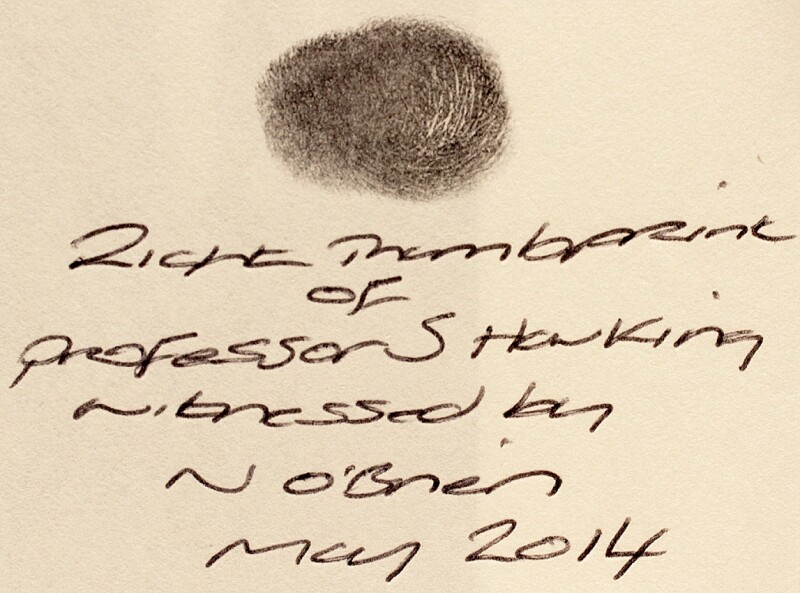 Right Thumbprint
of
professor S Hawking
witnessed by
N O'Brien
May 2014